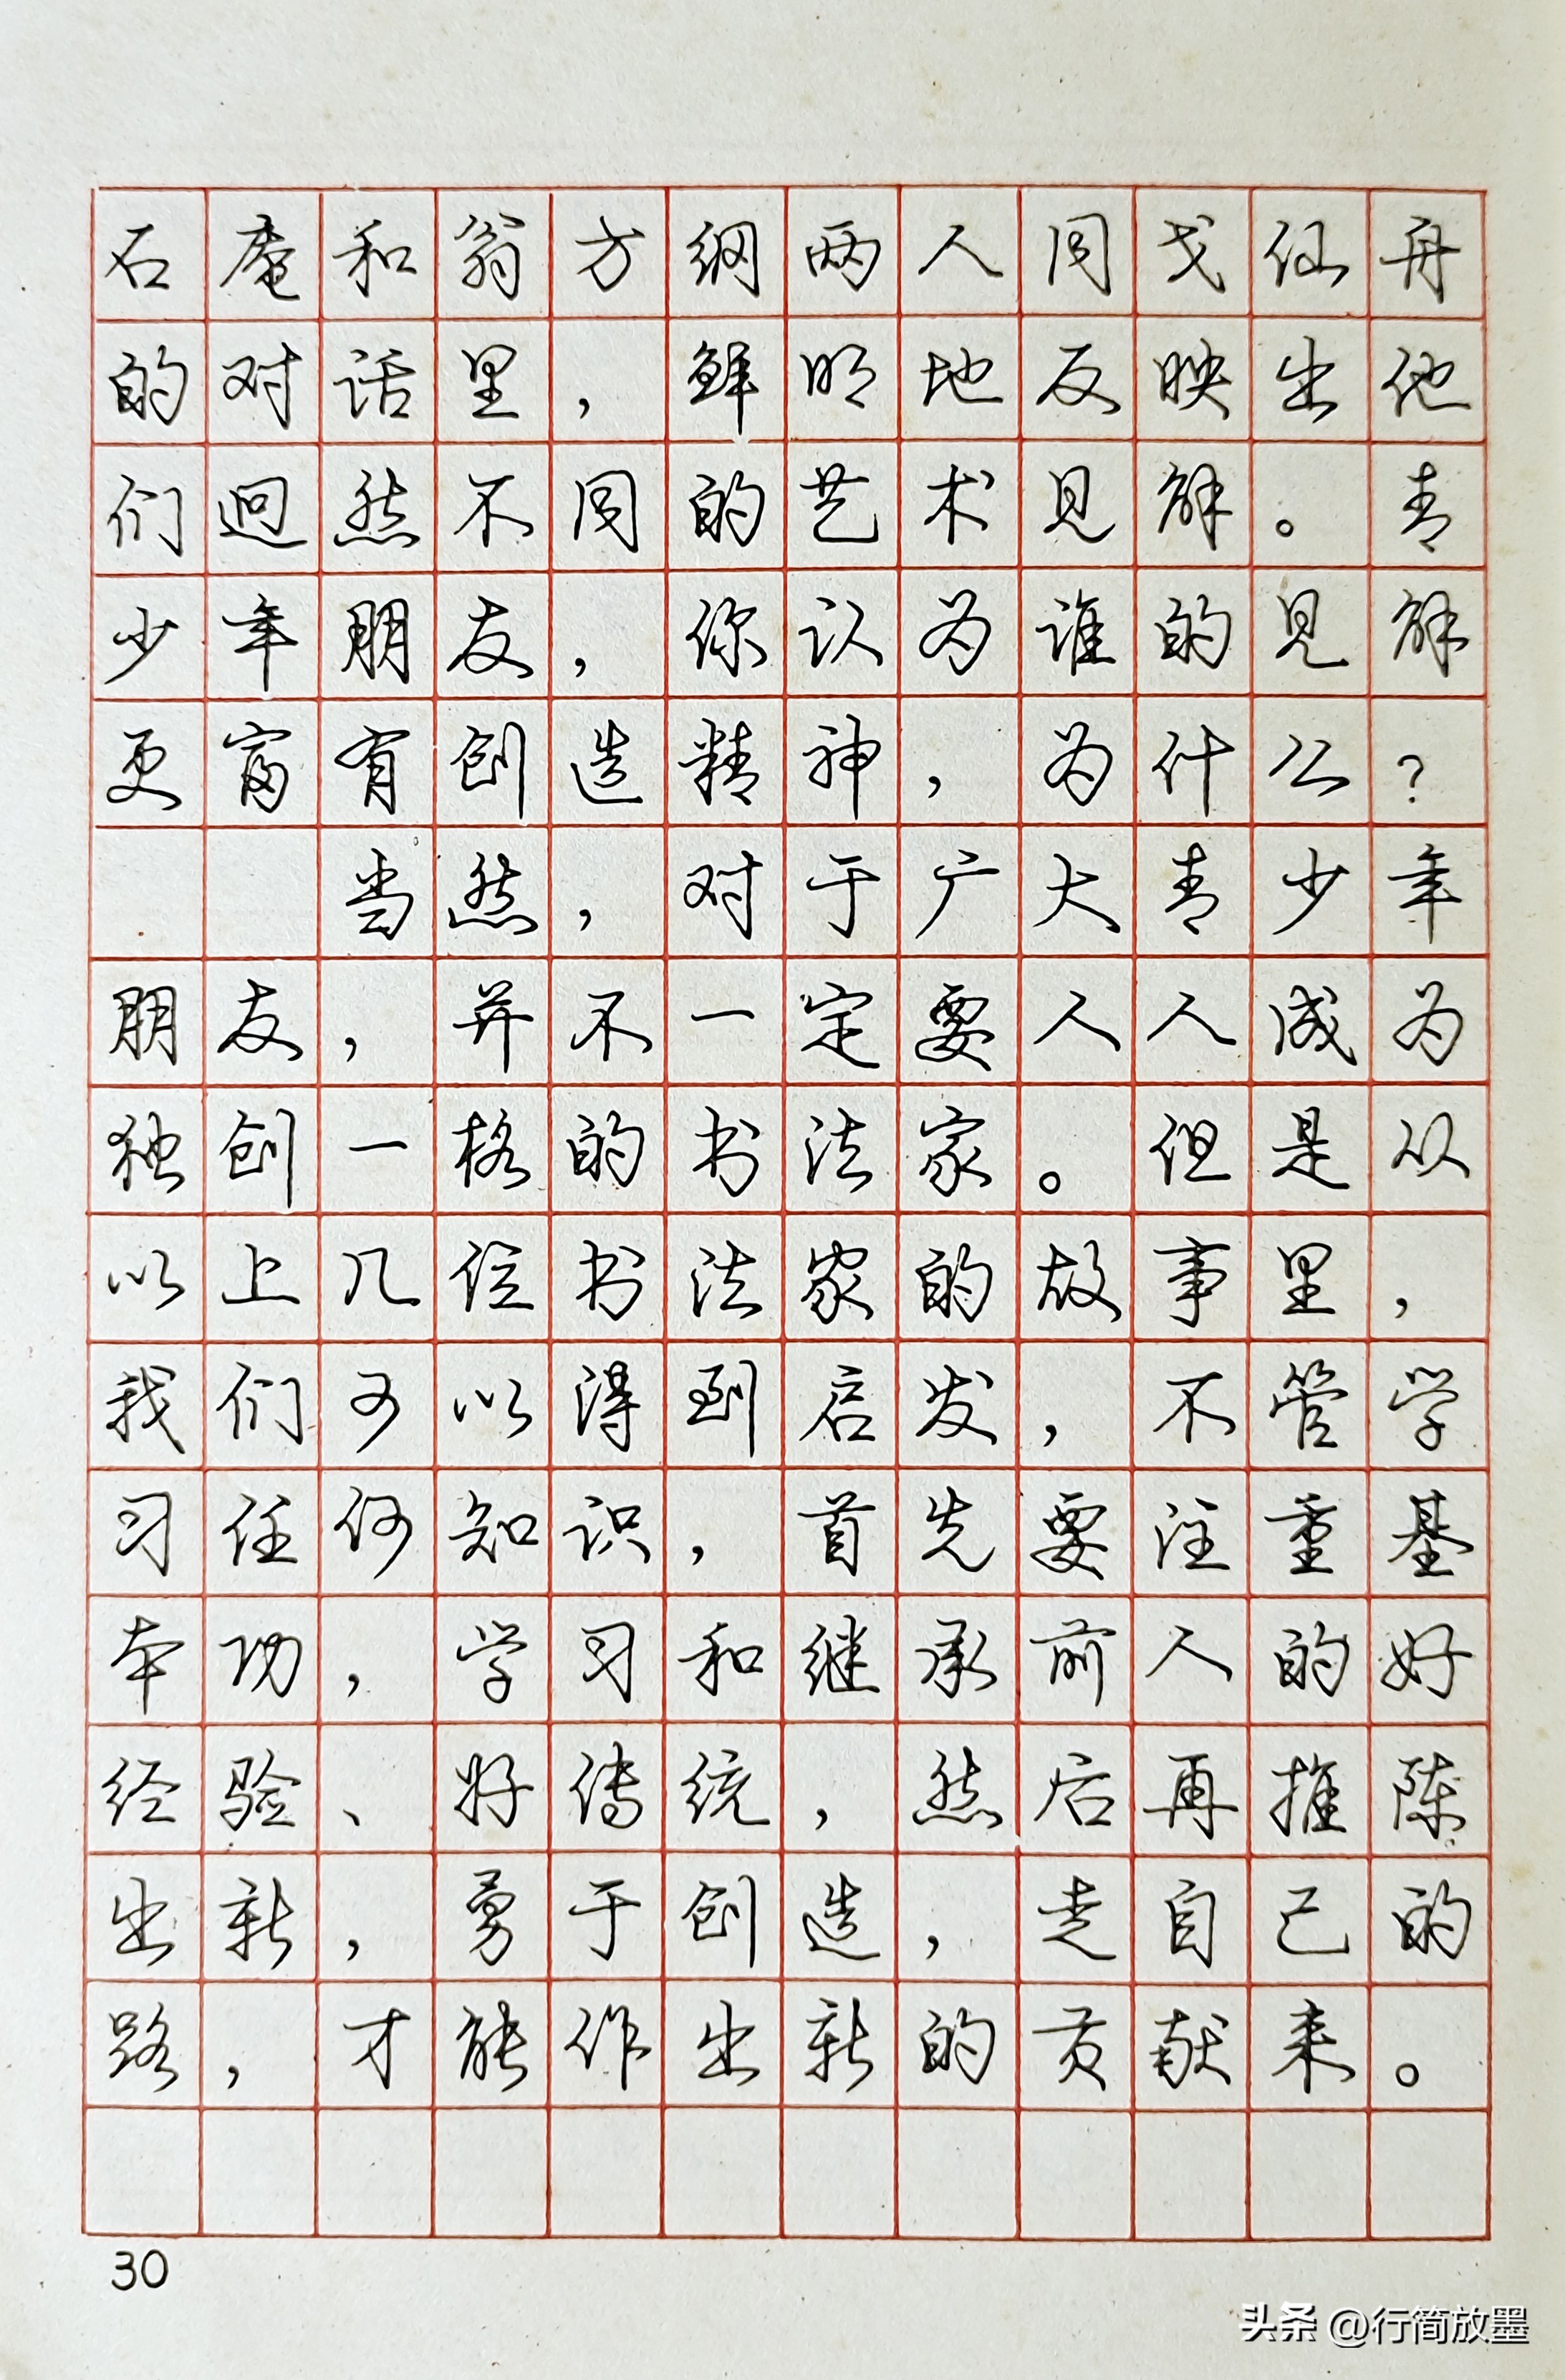 石庵和翁方纲两人同戈仙舟
的对话里，鲜明地反映出他
们迥然不同的艺术见解。青
少年朋友，你认为谁的见解
更富有创造精神，为什么？
当然，对于广大青少年
朋友，并不一定要人人成为
独创一格的书法家。但是从
以上几位书法家的故事里，
我们可以得到启发，不管学
习任何知识，首先要注重基
本功，学习和继承前人的好
经验、好传统，然后再推陈
出新，勇于创造，走自己的
路，才能作出新的贡献来。
30
头条 @行简放墨